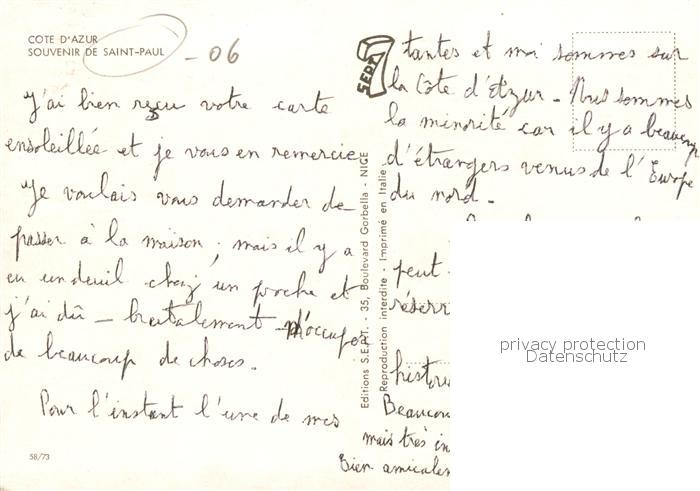 COTE D'AZUR
SOUVENIR DE SAINT-PAUL
- 06
J'ai bien reçu votre carte
ensoleillée et je vous en remercie
Je voulais vous demander de
passer à la maison, mais il y a
eu un deuil chez un proche et
j'ai dû - brutalement - m'occuper
de beaucoup de choses.
Pour l'instant l'une de mes
58/73
SEPT
Editions S.E.P.T. - 35, Boulevard Gorbella - NICE
Reproduction interdite - Imprimé en Italie
tantes et moi sommes sur
la Côte d'Azur - Nous sommes
la minorité car il y a beaucoup
d'étrangers venus de l'Europe
du nord -
peut
réserv
histor
Beaucou
mais très in
Bien amicalem
privacy protection
Datenschutz